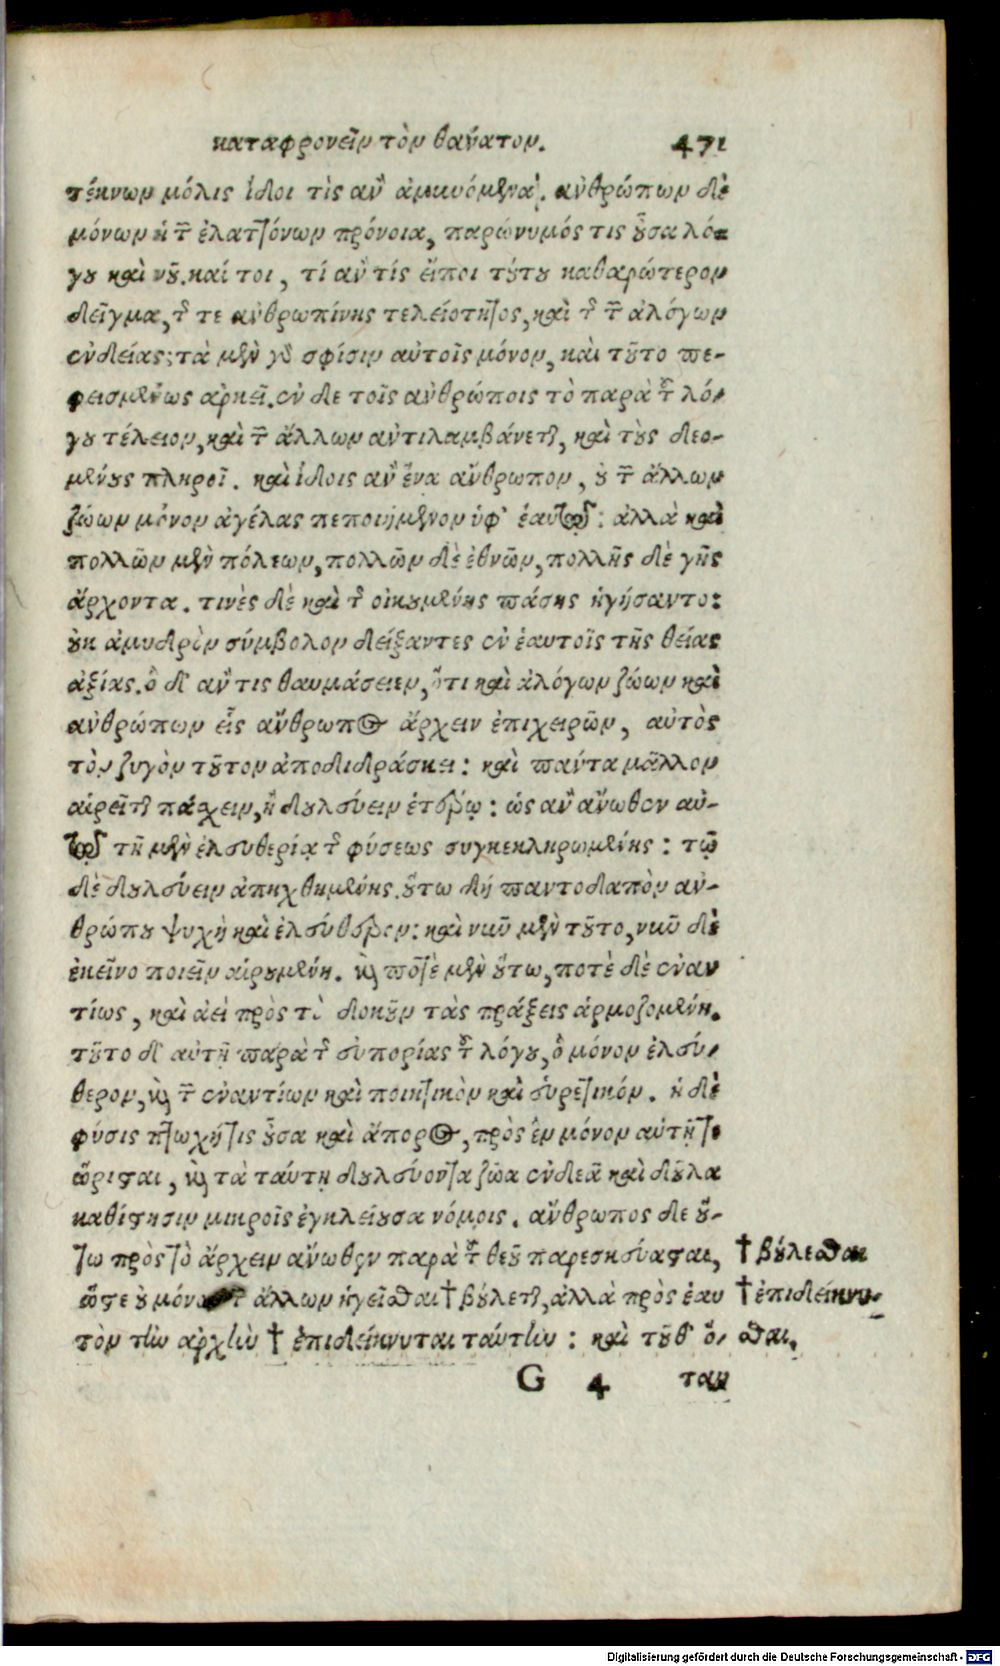 καταφρονεῖν τὸν θάνατον. 471
τέκνων μόλις ἴδοι τὶς ἂν ἀμυνόμενα. ἀνθρώπων δὲ
μόνων ἡ τῶν ἐλαττόνων πρόνοια, παρώνυμός τις οὖσα λό-
γου καὶ νοῦ. καί τοι, τί ἄν τίς εἴποι τούτου καθαρώτερον
δεῖγμα, τῆς τε ἀνθρωπίνης τελειότητος, καὶ τῆς τῶν ἀλόγων
ἐνδείας; τὰ μὲν γὰρ σφίσιν αὐτοῖς μόνον, καὶ τοῦτο πε-
φεισμένως ἀρκεῖ. ἐν δε τοῖς ἀνθρώποις τὸ παρὰ τοῦ λό-
γου τέλειον, καὶ τῶν ἄλλων ἀντιλαμβάνεται, καὶ τοὺς δεο-
μένους πληροῖ. καὶ ἴδοις ἂν ἕνα ἄνθρωπον, οὐ τῶν ἄλλων
ζώων μόνον ἀγέλας πεποιημένον ὑφ' ἑαυτῷ: ἀλλὰ καὶ
πολλῶν μὲν πόλεων, πολλῶν δὲ ἐθνῶν, πολλῆς δὲ γῆς
ἄρχοντα. τινὲς δὲ καὶ τῆς οἰκουμένης πάσης ἡγήσαντο:
οὐκ ἀμυδρὸν σύμβολον δείξαντες ἐν ἑαυτοῖς τῆς θείας
ἀξίας. ὃ δ' ἄν τις θαυμάσειεν, ὅτι καὶ ἀλόγων ζώων καὶ
ἀνθρώπων εἷς ἄνθρωπος ἄρχειν ἐπιχειρῶν, αὐτὸς
τὸν ζυγὸν τοῦτον ἀποδιδράσκει: καὶ πάντα μᾶλλον
αἱρεῖται πάσχειν, ἢ δουλεύειν ἑτέρῳ: ὡς ἂν ἄνωθεν αὐ-
τῷ τῇ μὲν ἐλευθερίᾳ τῆς φύσεως συγκεκληρωμένης: τῷ
δὲ δουλεύειν ἀπηχθημένης. οὕτω δή παντοδαπὸν ἀν-
θρώπου ψυχὴ καὶ ἐλεύθερον: καὶ νῦν μὲν τοῦτο, νῦν δὲ
ἐκεῖνο ποιεῖν αἱρουμένη. καὶ ποτὲ μὲν οὕτω, ποτὲ δὲ ἐναν
τίως, καὶ ἀεί πρὸς τὸ δοκοῦν τὰς πράξεις ἁρμοζομένη.
τοῦτο δ' αὐτῇ παρὰ τῆς εὐπορίας τοῦ λόγου, ὃ μόνον ἐλεύ-
θερον, καὶ τῶν ἐναντίων καὶ ποιητικὸν καὶ εὑρετικόν. ἡ δὲ
φύσις πτωχή τις οὖσα καὶ ἄπορος, πρὸς ἓν μόνον αὐτή τε
ὥρισται, καὶ τὰ ταύτῃ δουλεύοντα ζῶα ἐνδεᾶ καὶ δοῦλα
καθίστησιν μικροῖς ἐγκλείουσα νόμοις. ἄνθρωπος δε οὕ-
τω πρὸς τὸ ἄρχειν ἄνωθεν παρὰ τοῦ θεοῦ παρεσκεύασται, † βούλεσθαι
ὥστε οὐ μόνον τῶν ἄλλων ἡγεῖσθαι † βούλεται, ἀλλὰ πρὸς ἑαυ † ἐπιδείκνυ-
τὸν τὴν ἀρχὴν † ἐπιδείκνυται ταύτην: καὶ τοῦθ' ὅ- σθαι.
G 4 ταν
Digitalisierung gefördert durch die Deutsche Forschungsgemeinschaft - DFG